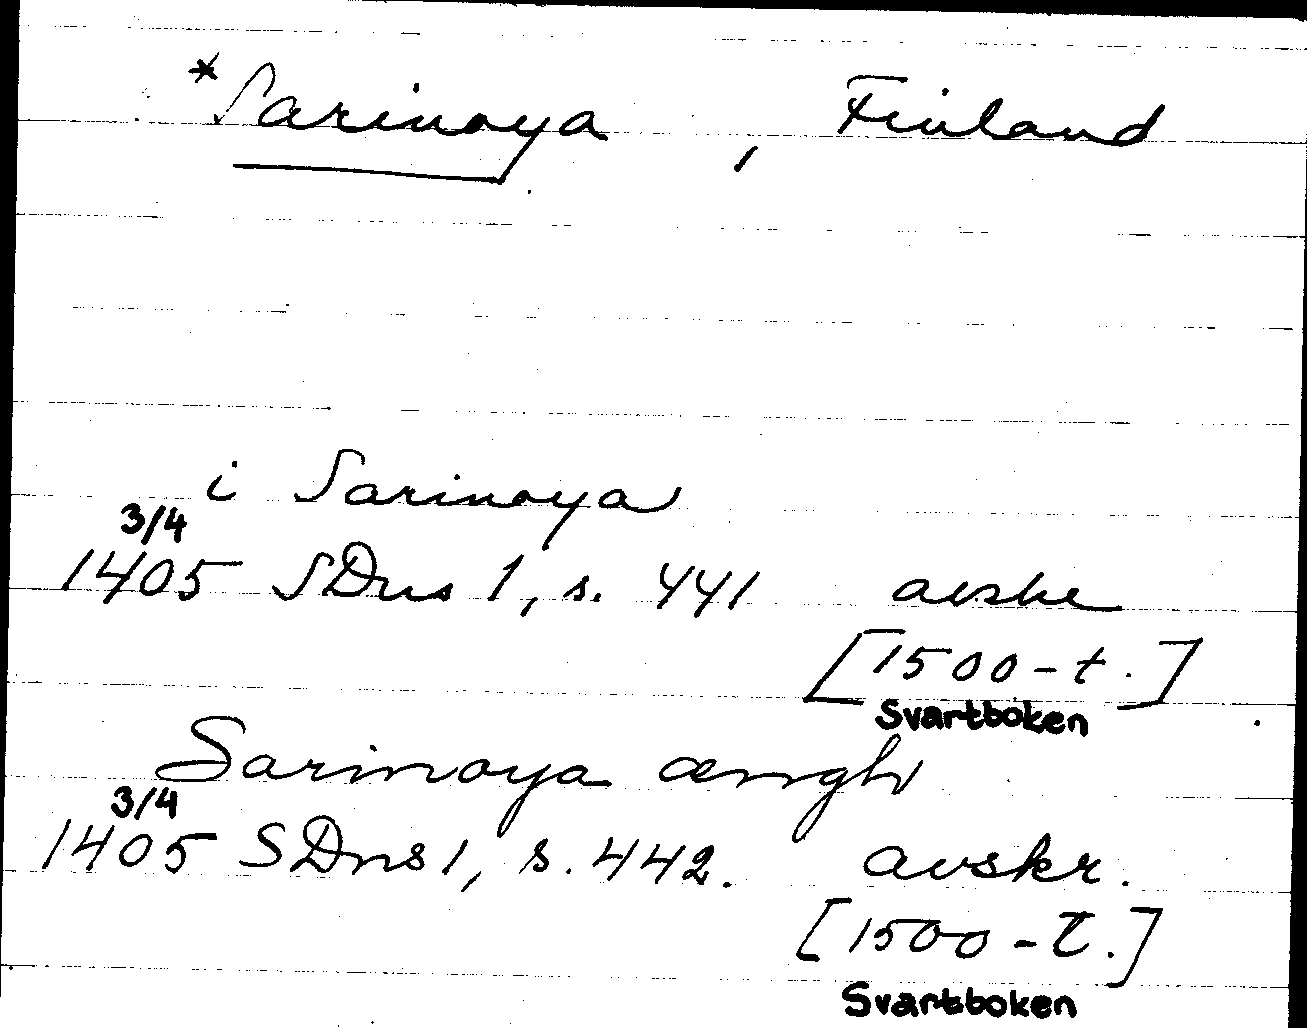 *Sarinoya , Finland
i Sarinoya
3/4
1405 SDns 1, s. 441 avskr
[1500-t.]
Svartboken
Sarinoya ængh
3/4
1405 SDns 1, s. 442. avskr.
[1500-t.]
Svartboken